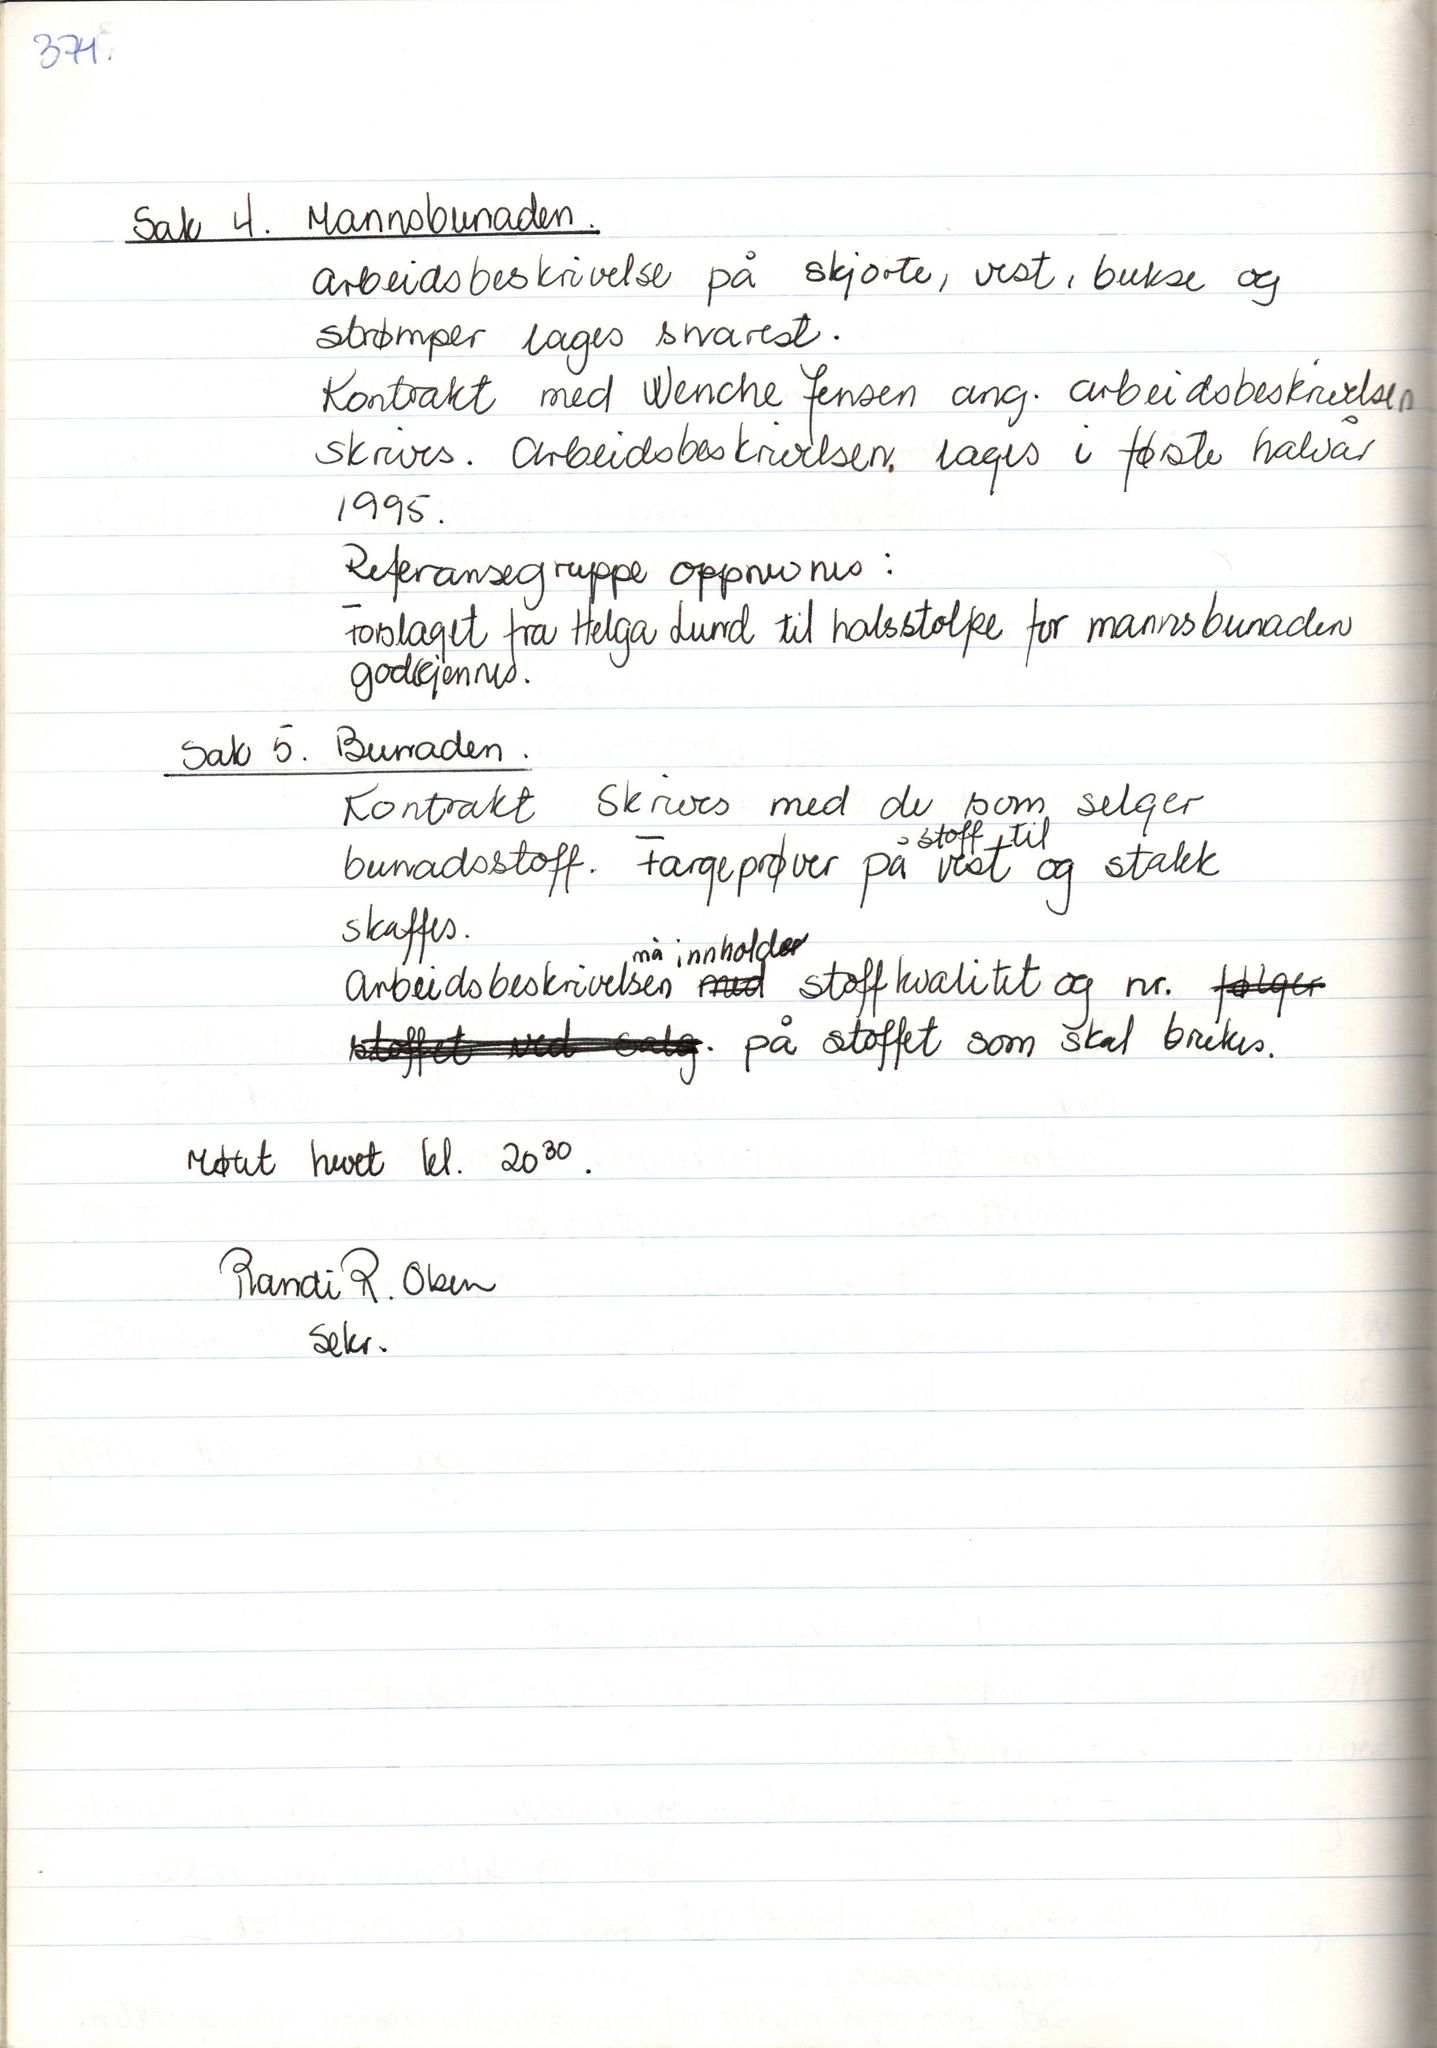 374.
Sak 4. Mannsbunaden.
Arbeidsbeskrivelse på skjorte, vest, bukse og
strømper lages snarest.
Kontrakt med Wenche Jensen ang. arbeidsbeskrivelsen
skrives. Arbeidsbeskrivelsen, lages i første halvår
1995.
Referansegruppe oppnevnes:
Forslaget fra Helga Lund til halsstolpe for mannsbunaden
godkjennes.
Sak 5. Bunaden.
Kontrakt skrives med de som selger
stoff til
bunadsstoff. Fargeprøver på vest og stakk
skaffes.
må innholder
Arbeidsbeskrivelsen med stoffkvalitet og nr. følger
stoffet ved salg. på stoffet som skal brukes.
Møtet hevet kl. 20³⁰.
Randi R. Olsen
Sekr.